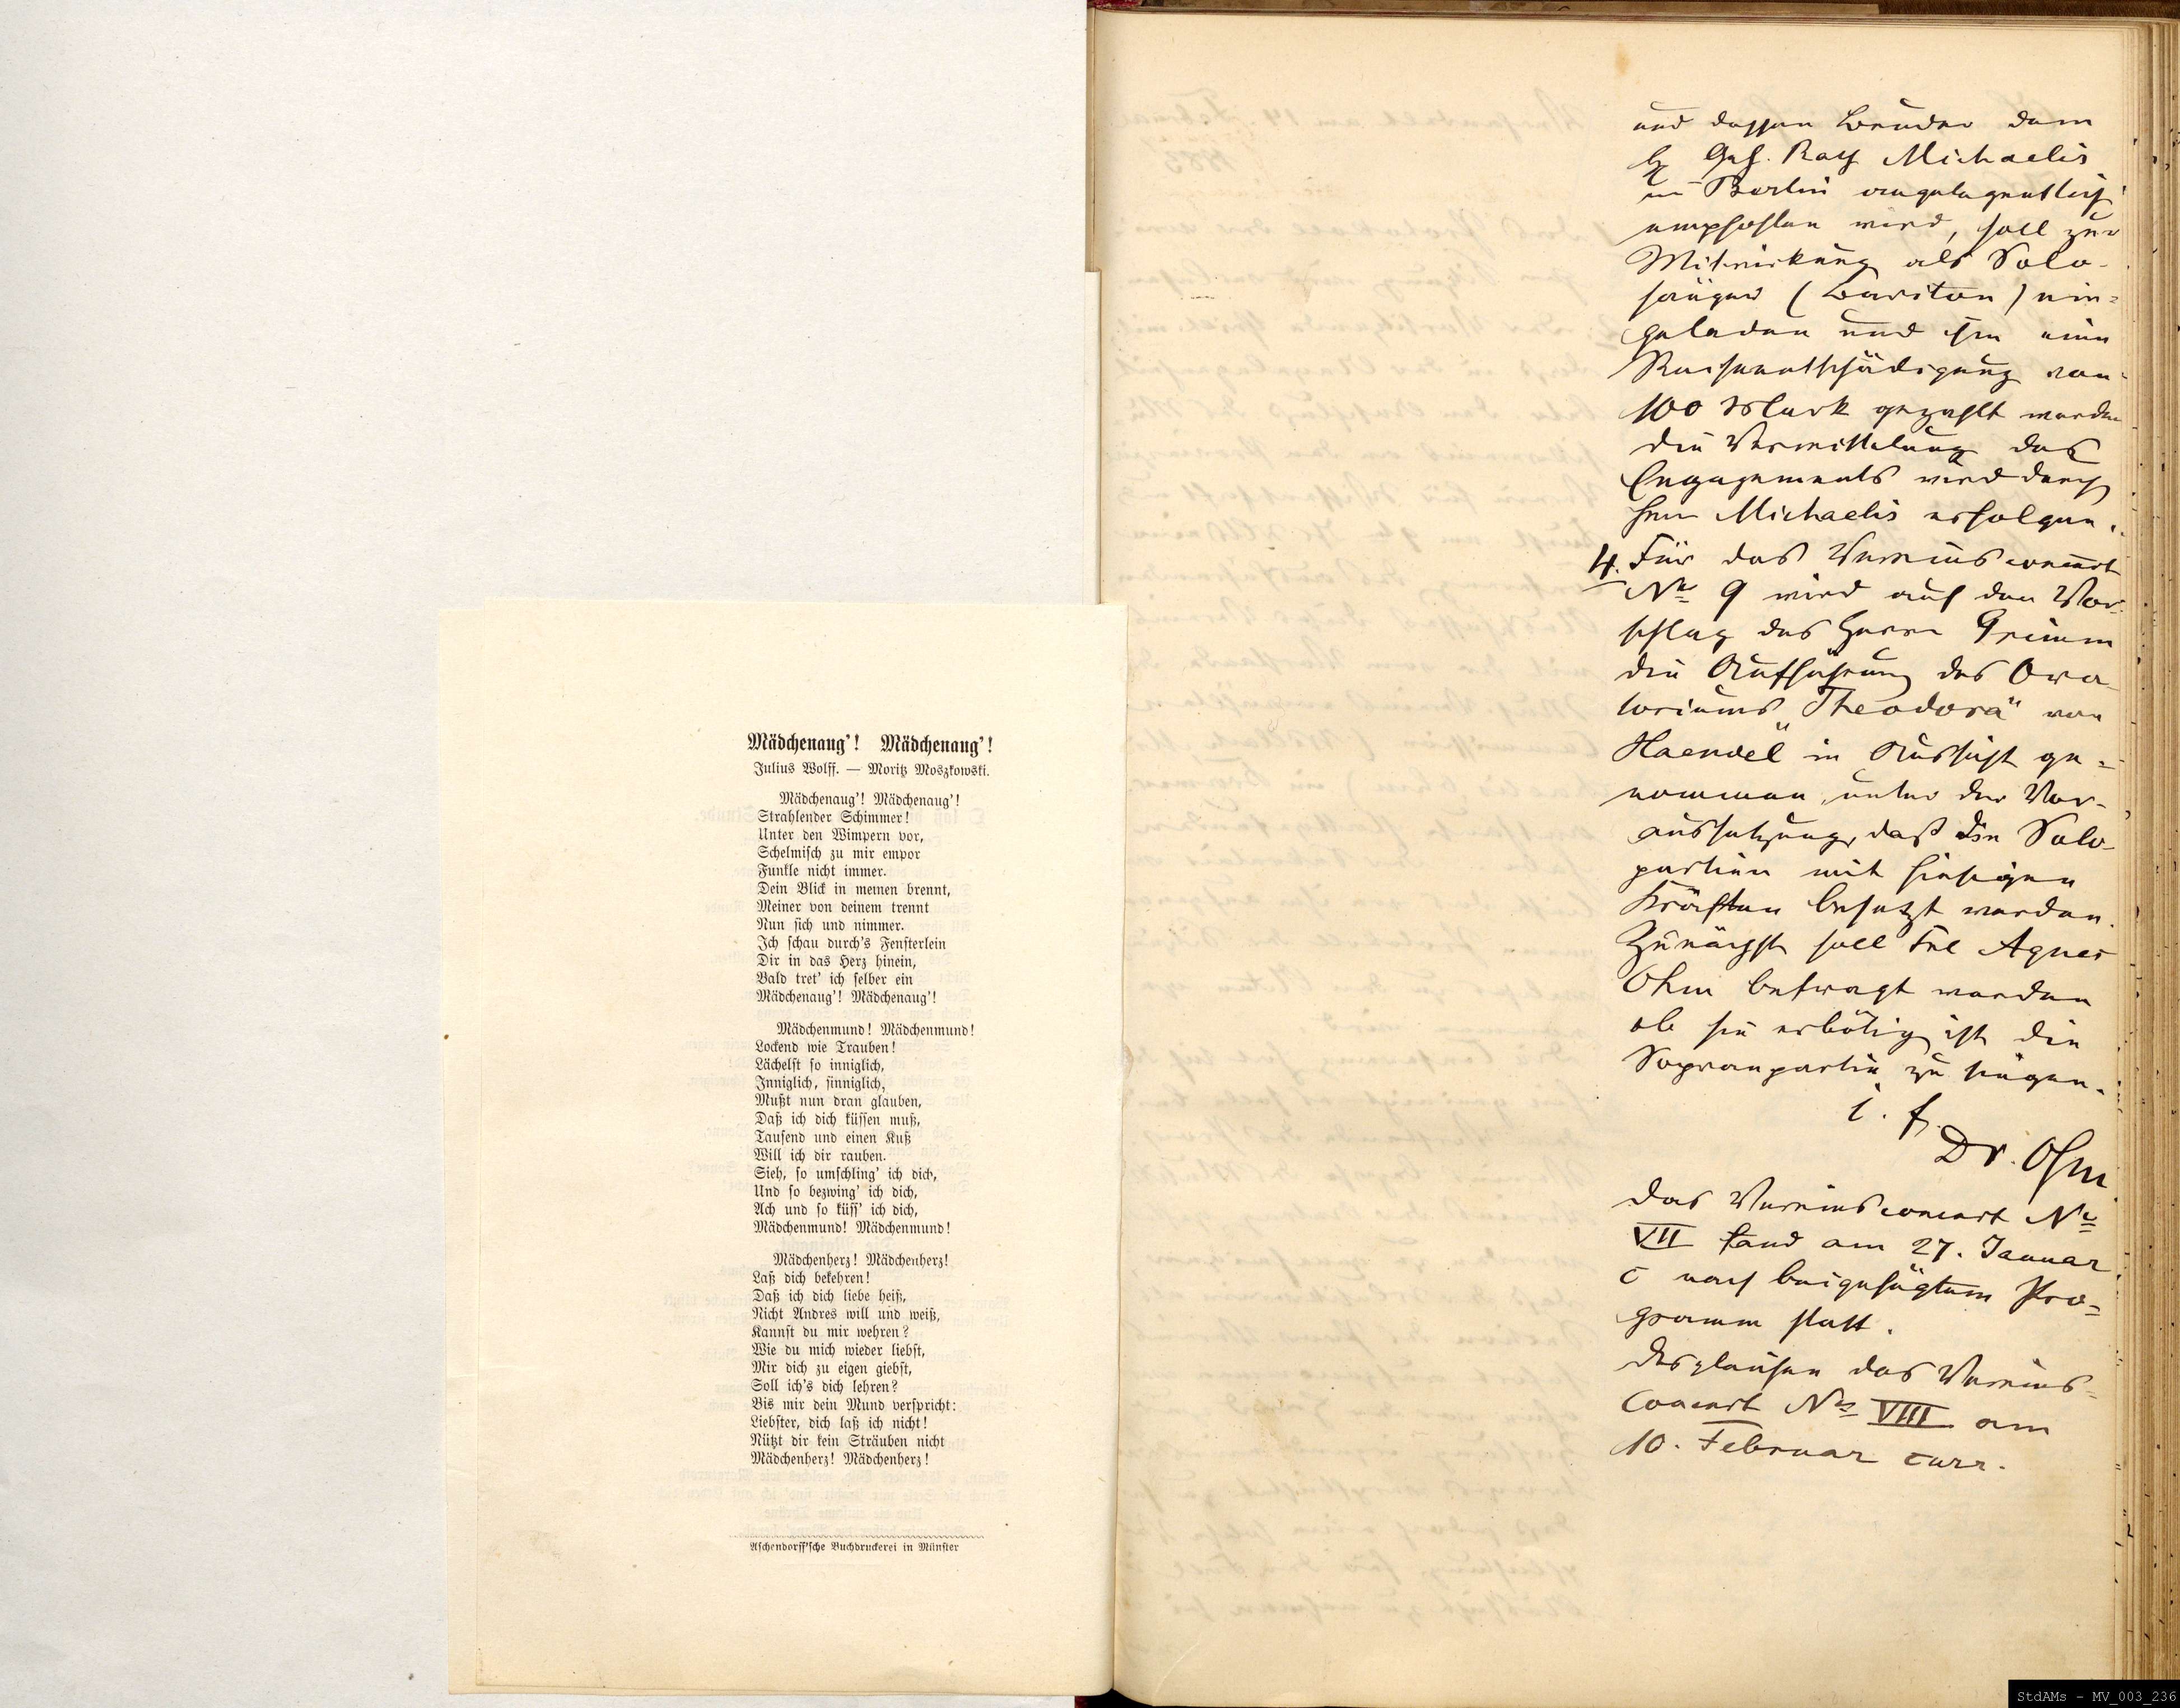 Mädchenaug'! Mädchenaug'!
Julius Wolff. — Moritz Moszkowski.
Mädchenaug'! Mädchenaug'!
Strahlender Schimmer!
Unter den Wimpern vor,
Schelmisch zu mir empor
Funkle nicht immer.
Dein Blick in meinen brennt,
Meiner von deinem trennt
Nun sich und nimmer.
Ich schau durch's Fensterlein
Dir in das Herz hinein,
Bald tret' ich selber ein
Mädchenaug'! Mädchenaug'!
Mädchenmund! Mädchenmund!
Lockend wie Trauben!
Lächelst so inniglich,
Inniglich, sinniglich,
Mußt nun dran glauben,
Daß ich dich küssen muß,
Tausend und einen Kuß
Will ich dir rauben.
Sieh, so umschling' ich dich,
Und so bezwing' ich dich,
Ach und so küss' ich dich,
Mädchenmund! Mädchenmund!
Mädchenherz! Mädchenherz!
Laß dich bekehren!
Daß ich dich liebe heiß,
Nicht Andres will und weiß,
Kannst du mir wehren?
Wie du mich wieder liebst,
Mir dich zu eigen giebst,
Soll ich's dich lehren?
Bis mir dein Mund verspricht:
Liebster, dich laß ich nicht!
Nützt dir kein Sträuben nicht
Mädchenherz! Mädchenherz!
Aschendorff'sche Buchdruckerei in Münster
und dessen Bruder dem
H Geh. Rath Michaelis
in Berlin angelegentlich
empfohlen wird, soll zur
Mitwirkung als Solo-
sänger (Bariton) ein=
geladen und ihm eine
Reiseentschädigung von
100 Mark gezahlt werden
die Vermittelung des
Engagements wird durch
Herrn Michaelis erfolgen.
4. Für das Vereinsconcert
No 9 wird auf den Vor-
schlag des Herrn Grimm
die Aufführung des Ora-
toriums „Theodora" von
Haendel in Aussicht ge=
nommen, unter der Vor-
aussetzung, daß die Solo-
partien mit hiesigen
Kräften besetzt werden.
Zunächst soll Frl Agnes
Ohm befragt werden
ob sie erbötig ist die
Sopranpartie zu singen.
i. f.
Dr. Ohm
Das Vereinsconcert No
VII fand am 27. Januar
c nach beigefügtem Pro=
gramm statt.
Desgleichen das Vereins=
Concert No VIII am
10. Februar curr.
StdAMs - MV_003_236